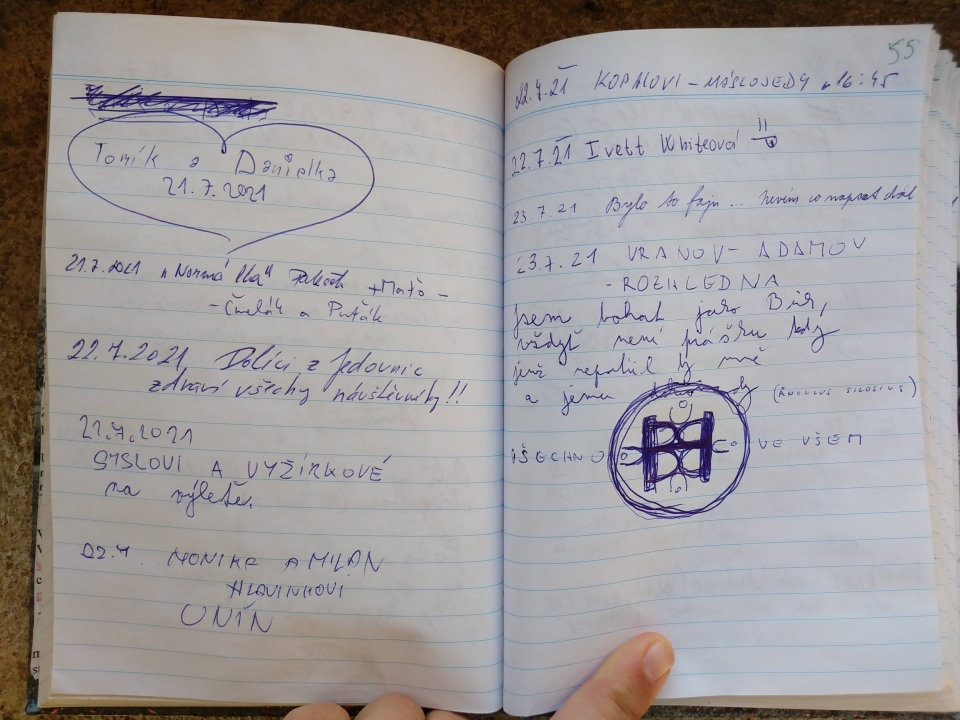 Tomík a Danielka
21.7.2021
21.7.2021 "Normá lka" +Maťo -
- Čmelák a Puťák
22.7.2021 Dolíci z Jedovnic
zdraví všechy návštěvníky!!
22.7.2021
SYSLOVI A VYŽÍRKOVÉ
na výletě.
22.7. MONIKA A MILAN
HLAVINKOVI
UNÍN
55
22.7.21 KOPALOVI - MÁSLOJEDY 16:45
22.7.21 Ivett Whiteová
23.7.21 Bylo to fajn... nevím co napsat dál
23.7.21 VRANOV - ADAMOV
- ROZHLEDNA
Jsem bohat jako Bůh,
vždyť není prášku kdy
jenž nepatřil by mně
a jemu (ANGELUS SILESIUS)
VŠECHNO VE VŠEM